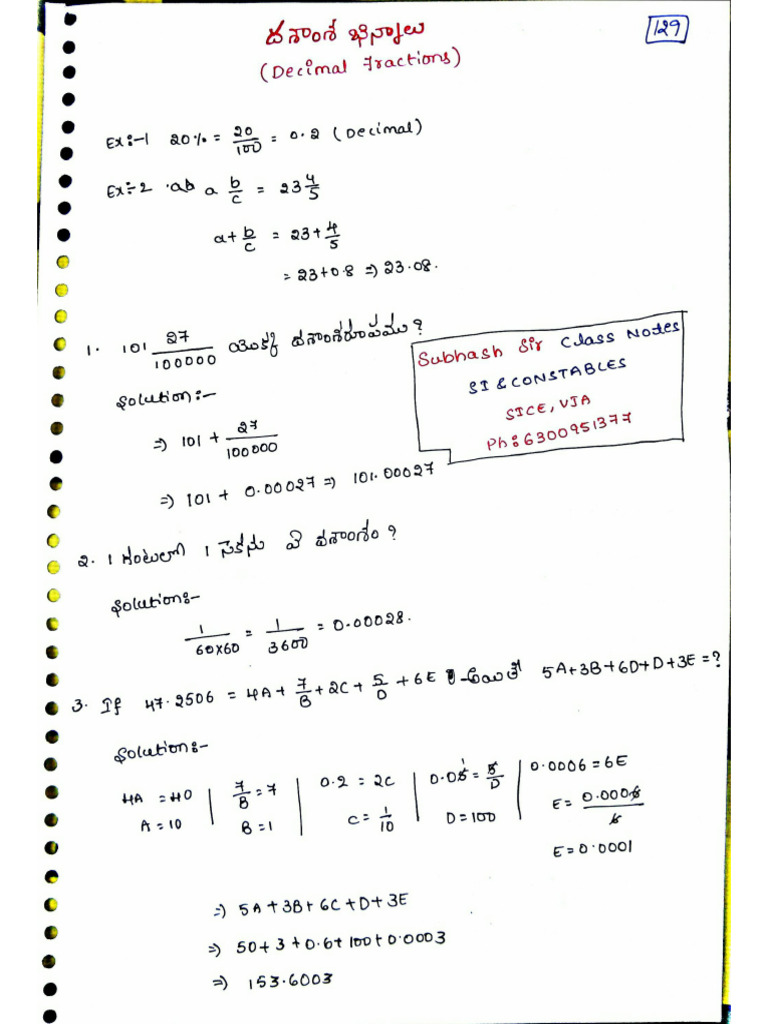 దశాంశ భిన్నాలు
129
(Decimal Fractions)
Ex:-1 20% = 20/100 = 0.2 (Decimal)
Ex:-2 .ab a b/c = 23 4/5
a + b/c = 23 + 4/5
= 23+0.8 => 23.08.
1. 101 27/100000 యొక్క దశాంశరూపము?
Subhash Sir Class Notes
SI & CONSTABLES
SICE, VJA
Ph: 6300951377
Solution:-
=> 101 + 27/100000
=> 101 + 0.00027 => 101.00027
2. 1 గంటలో 1 సెకను ఏ దశాంశం?
Solution:-
1/60x60 = 1/3600 = 0.00028.
3. If 47.2506 = 4A + 7/B + 2C + 5/D + 6E అయితే 5A+3B+6D+D+3E=?
Solution:-
4A = 40 | 7/B = 7 | 0.2 = 2C | 0.05 = 5/D | 0.0006 = 6E
A = 10 | B = 1 | C = 1/10 | D = 100 | E = 0.0006/6
E = 0.0001
=> 5A + 3B + 6C + D + 3E
=> 50 + 3 + 0.6 + 100 + 0.0003
=> 153.6003